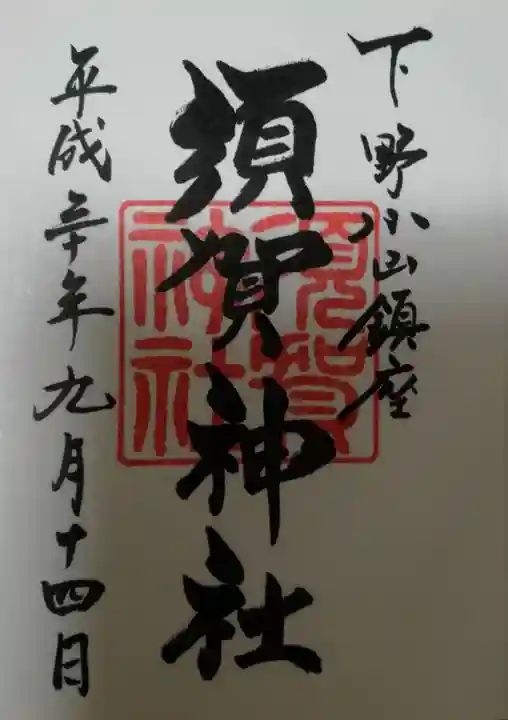 下野小山鎮座
須賀神社
須賀
神社
平成三十年九月十四日